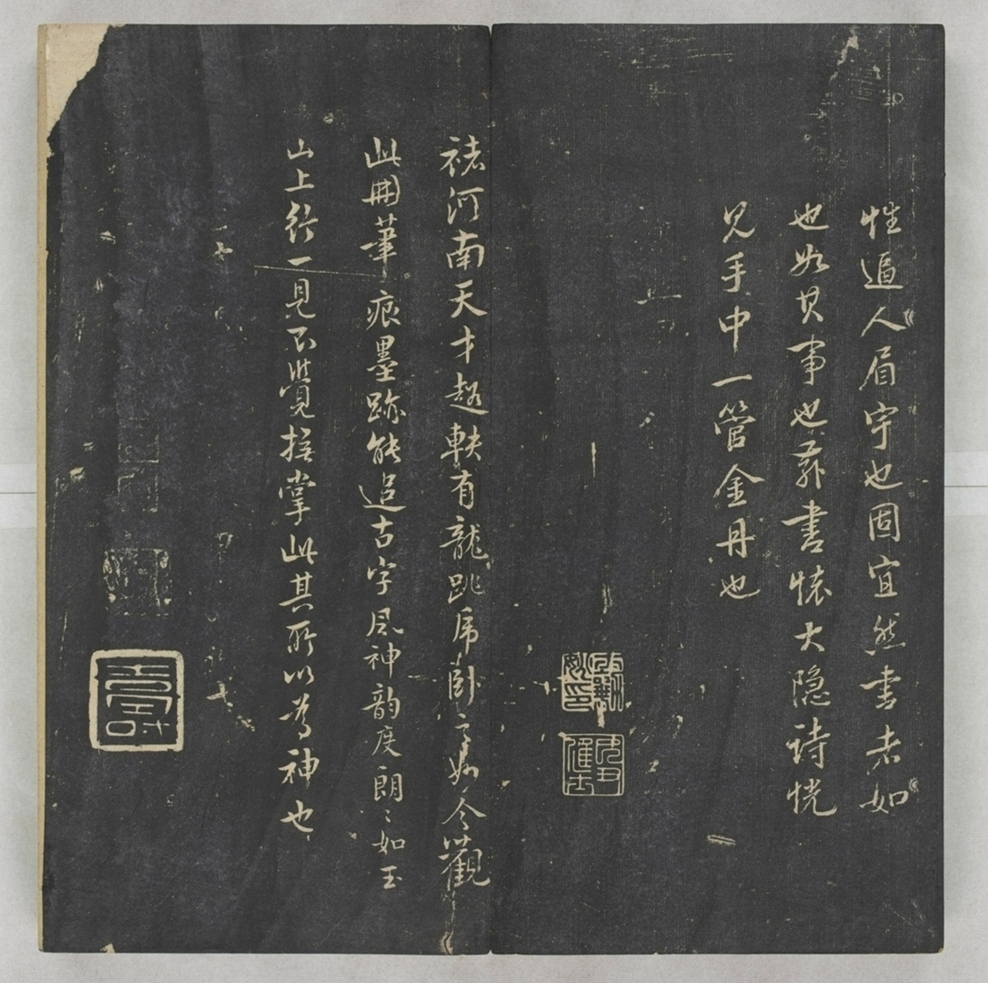 性逼人眉宇也固宜然書未如
也如其事也葬書懐大隐詩恍
見手中一管金丹也
褚河南天才超軼有龍跳虎卧之如今觀
此冊筆痕墨跡能追古字風神韵度朗〻如玉
山上行一見不覺撫掌此其所以為神也